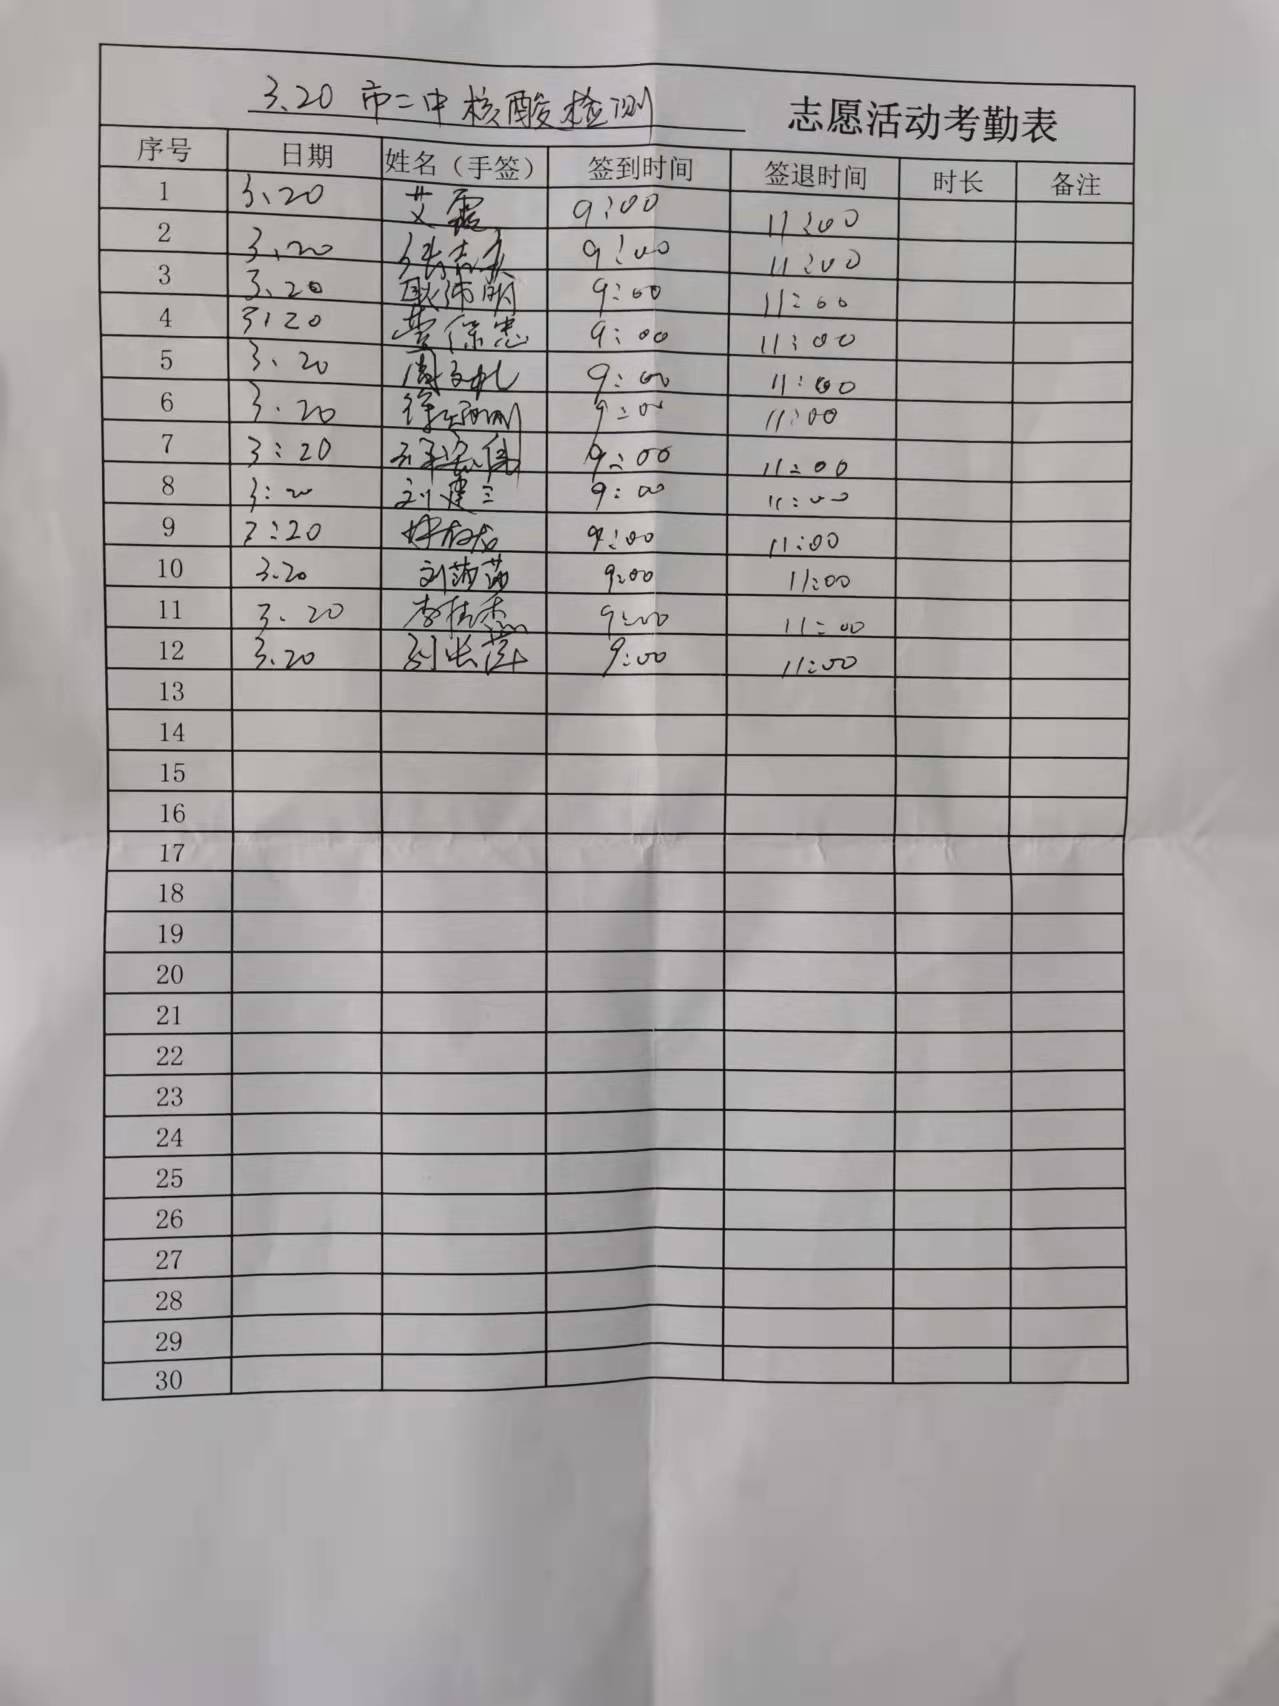 3.20 市二中核酸检测 志愿活动考勤表
序号 日期 姓名（手签） 签到时间 签退时间 时长 备注
1 3.20 艾露 9:00 11:00
2 3.20 9:00 11:00
3 3.20 耿沛明 9:00 11:00
4 3.20 保忠 9:00 11:00
5 3.20 周文礼 9:00 11:00
6 3.20 徐 刚 9:00 11:00
7 3:20 9:00 11:00
8 3:20 刘建三 9:00 11:00
9 3:20 9:00 11:00
10 3.20 刘莎莎 9:00 11:00
11 3.20 李桂杰 9:00 11:00
12 3.20 刘长萍 9:00 11:00
13
14
15
16
17
18
19
20
21
22
23
24
25
26
27
28
29
30